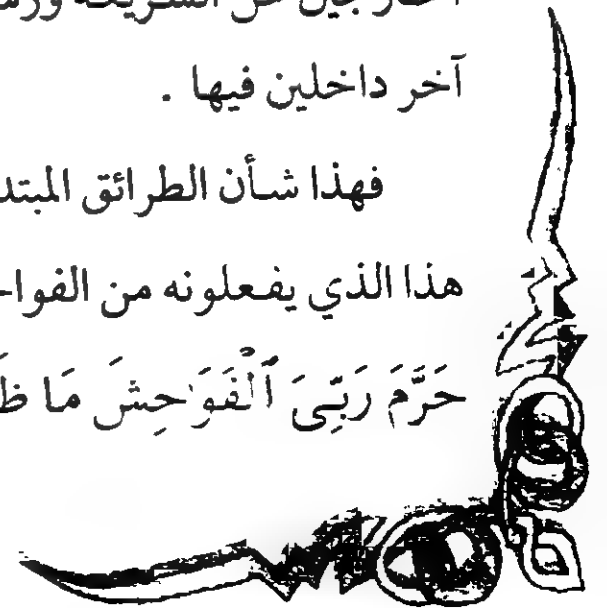 آخر داخلين فيها .
فهذا شأن الطرائق
هذا الذي يفعلونه من
حَرَّمَ رَبِّىَ ٱلْفَوَٰحِشَ مَا